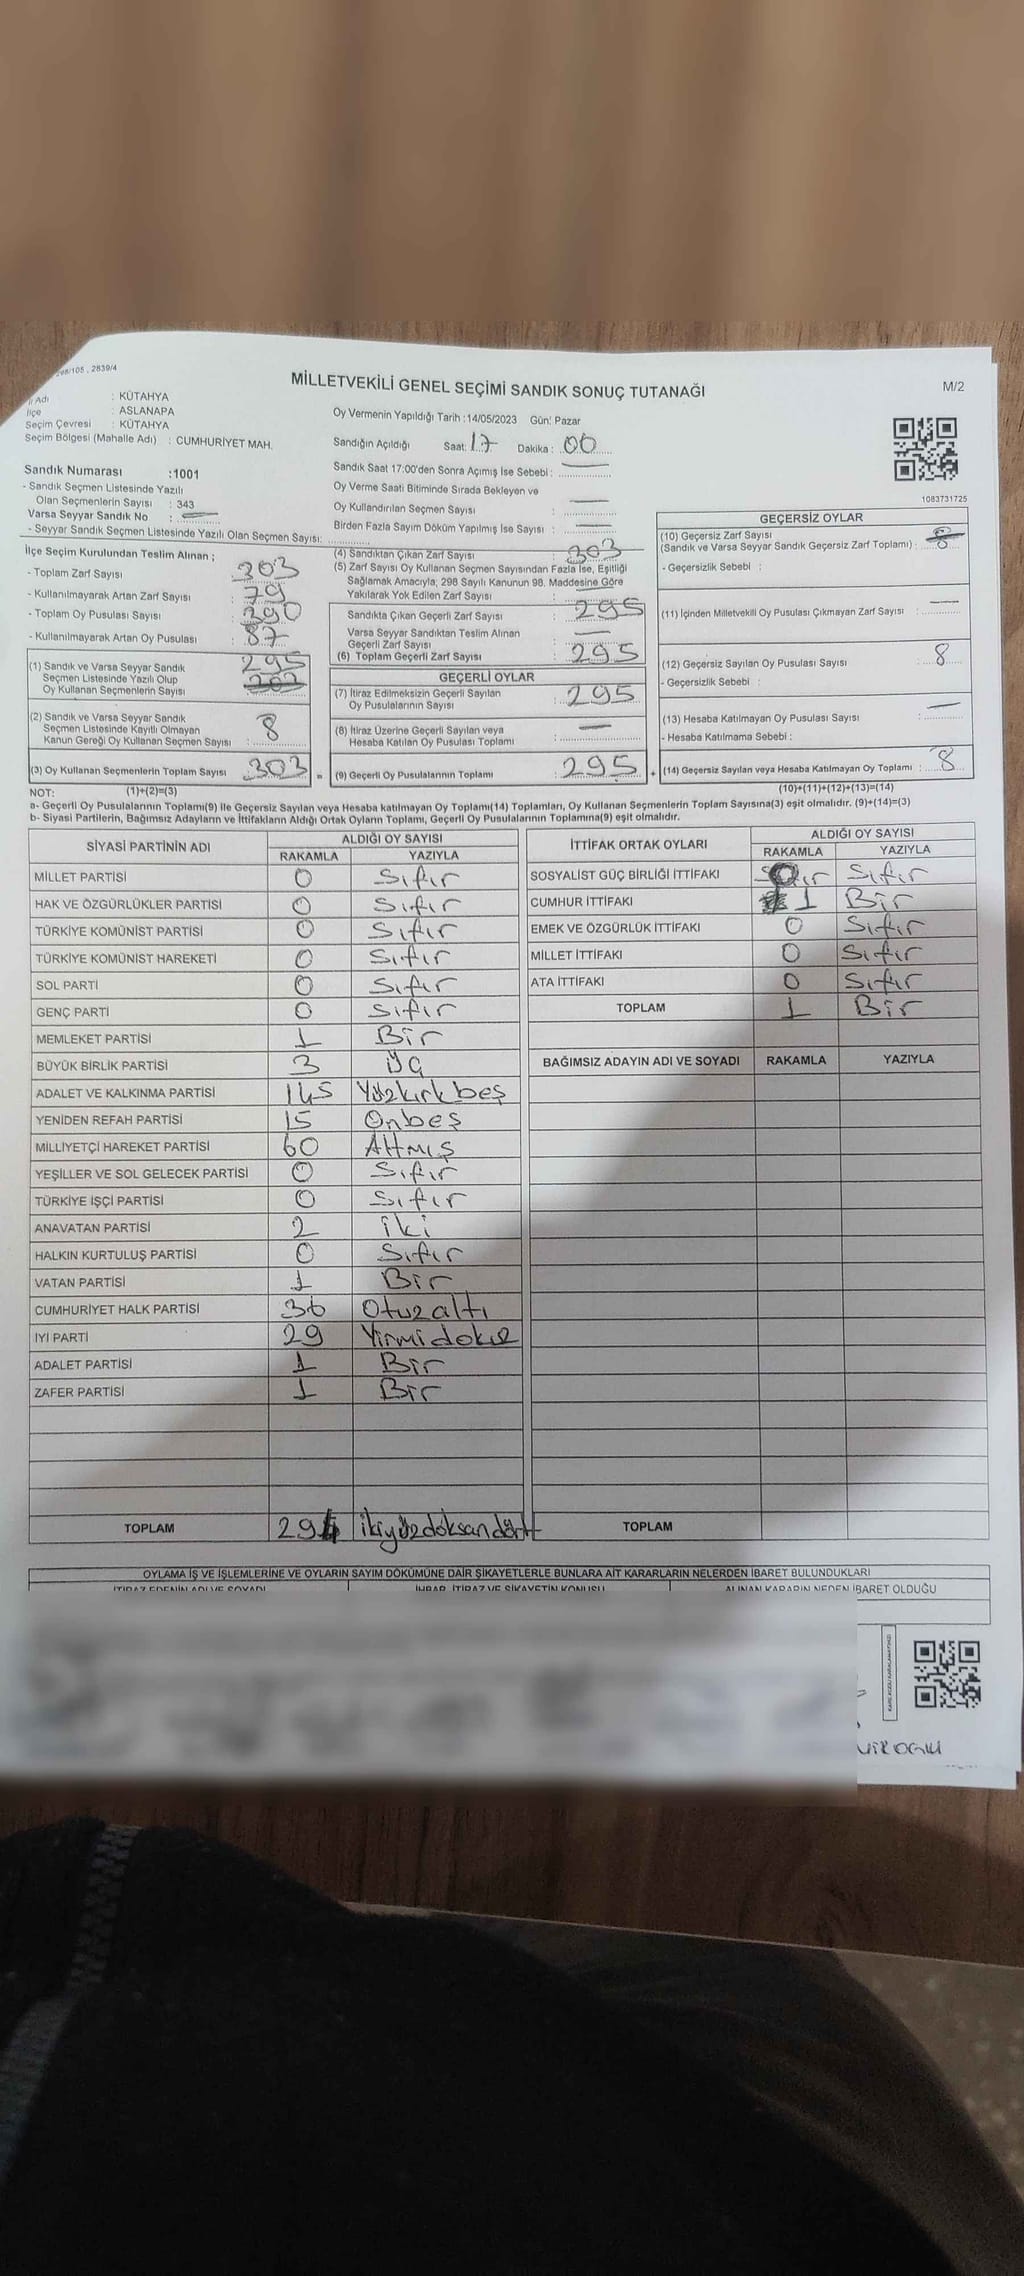 298/105 , 2839/4
MİLLETVEKİLİ GENEL SEÇİMİ SANDIK SONUÇ TUTANAĞI
M/2
İl Adı : KÜTAHYA
İlçe : ASLANAPA
Seçim Çevresi : KÜTAHYA
Seçim Bölgesi (Mahalle Adı) : CUMHURİYET MAH.
Sandık Numarası :1001
- Sandık Seçmen Listesinde Yazılı
Olan Seçmenlerin Sayısı : 343
Varsa Seyyar Sandık No :
- Seyyar Sandık Seçmen Listesinde Yazılı Olan Seçmen Sayısı:
Oy Vermenin Yapıldığı Tarih : 14/05/2023 Gün: Pazar
Sandığın Açıldığı Saat: 17 Dakika : 00
Sandık Saat 17:00'den Sonra Açımış İse Sebebi : —
Oy Verme Saati Bitiminde Sırada Bekleyen ve
Oy Kullandırılan Seçmen Sayısı : —
Birden Fazla Sayım Döküm Yapılmış İse Sayısı : —
1083731725
İlçe Seçim Kurulundan Teslim Alınan ;
- Toplam Zarf Sayısı : 303
- Kullanılmayarak Artan Zarf Sayısı : 79
- Toplam Oy Pusulası Sayısı : 390
- Kullanılmayarak Artan Oy Pusulası : 87
(1) Sandık ve Varsa Seyyar Sandık
Seçmen Listesinde Yazılı Olup
Oy Kullanan Seçmenlerin Sayısı : 295
(2) Sandık ve Varsa Seyyar Sandık
Seçmen Listesinde Kayıtlı Olmayan
Kanun Gereği Oy Kullanan Seçmen Sayısı : 8
(3) Oy Kullanan Seçmenlerin Toplam Sayısı : 303 =
(4) Sandıktan Çıkan Zarf Sayısı : 303
(5) Zarf Sayısı Oy Kullanan Seçmen Sayısından Fazla İse, Eşitliği
Sağlamak Amacıyla, 298 Sayılı Kanunun 98. Maddesine Göre
Yakılarak Yok Edilen Zarf Sayısı :
Sandıkta Çıkan Geçerli Zarf Sayısı : 295
Varsa Seyyar Sandıktan Teslim Alınan
Geçerli Zarf Sayısı : —
(6) Toplam Geçerli Zarf Sayısı : 295
GEÇERLİ OYLAR
(7) İtiraz Edilmeksizin Geçerli Sayılan
Oy Pusulalarının Sayısı : 295
(8) İtiraz Üzerine Geçerli Sayılan veya
Hesaba Katılan Oy Pusulası Toplamı : —
(9) Geçerli Oy Pusulalarının Toplamı : 295 +
GEÇERSİZ OYLAR
(10) Geçersiz Zarf Sayısı
(Sandık ve Varsa Seyyar Sandık Geçersiz Zarf Toplamı) :
- Geçersizlik Sebebi :
(11) İçinden Milletvekili Oy Pusulası Çıkmayan Zarf Sayısı : —
(12) Geçersiz Sayılan Oy Pusulası Sayısı : 8
- Geçersizlik Sebebi :
(13) Hesaba Katılmayan Oy Pusulası Sayısı : —
- Hesaba Katılmama Sebebi :
(14) Geçersiz Sayılan veya Hesaba Katılmayan Oy Toplamı : 8
NOT: (1)+(2)=(3) (10)+(11)+(12)+(13)=(14)
a- Geçerli Oy Pusulalarının Toplamı(9) ile Geçersiz Sayılan veya Hesaba katılmayan Oy Toplamı(14) Toplamları, Oy Kullanan Seçmenlerin Toplam Sayısına(3) eşit olmalıdır. (9)+(14)=(3)
b- Siyasi Partilerin, Bağımsız Adayların ve İttifakların Aldığı Ortak Oyların Toplamı, Geçerli Oy Pusulalarının Toplamına(9) eşit olmalıdır.
SİYASİ PARTİNİN ADI ALDIĞI OY SAYISI
RAKAMLA YAZIYLA
MİLLET PARTİSİ 0 Sıfır
HAK VE ÖZGÜRLÜKLER PARTİSİ 0 Sıfır
TÜRKİYE KOMÜNİST PARTİSİ 0 Sıfır
TÜRKİYE KOMÜNİST HAREKETİ 0 Sıfır
SOL PARTİ 0 Sıfır
GENÇ PARTİ 0 Sıfır
MEMLEKET PARTİSİ 1 Bir
BÜYÜK BİRLİK PARTİSİ 3 Üç
ADALET VE KALKINMA PARTİSİ 145 Yüzkırkbeş
YENİDEN REFAH PARTİSİ 15 Onbeş
MİLLİYETÇİ HAREKET PARTİSİ 60 Altmış
YEŞİLLER VE SOL GELECEK PARTİSİ 0 Sıfır
TÜRKİYE İŞÇİ PARTİSİ 0 Sıfır
ANAVATAN PARTİSİ 2 iki
HALKIN KURTULUŞ PARTİSİ 0 Sıfır
VATAN PARTİSİ 1 Bir
CUMHURİYET HALK PARTİSİ 36 Otuzaltı
İYİ PARTİ 29 Yirmidokuz
ADALET PARTİSİ 1 Bir
ZAFER PARTİSİ 1 Bir
TOPLAM 294 ikiyüzdoksandört
İTTİFAK ORTAK OYLARI ALDIĞI OY SAYISI
RAKAMLA YAZIYLA
SOSYALİST GÜÇ BİRLİĞİ İTTİFAKI 0 Sıfır
CUMHUR İTTİFAKI 1 Bir
EMEK VE ÖZGÜRLÜK İTTİFAKI 0 Sıfır
MİLLET İTTİFAKI 0 Sıfır
ATA İTTİFAKI 0 Sıfır
TOPLAM 1 Bir
BAĞIMSIZ ADAYIN ADI VE SOYADI RAKAMLA YAZIYLA
TOPLAM
OYLAMA İŞ VE İŞLEMLERİNE VE OYLARIN SAYIM DÖKÜMÜNE DAİR ŞİKAYETLERLE BUNLARA AİT KARARLARIN NELERDEN İBARET BULUNDUKLARI
İTİRAZ EDENİN ADI VE SOYADI İHBAR, İTİRAZ VE ŞİKAYETİN KONUSU ALINAN KARARIN NEDEN İBARET OLDUĞU